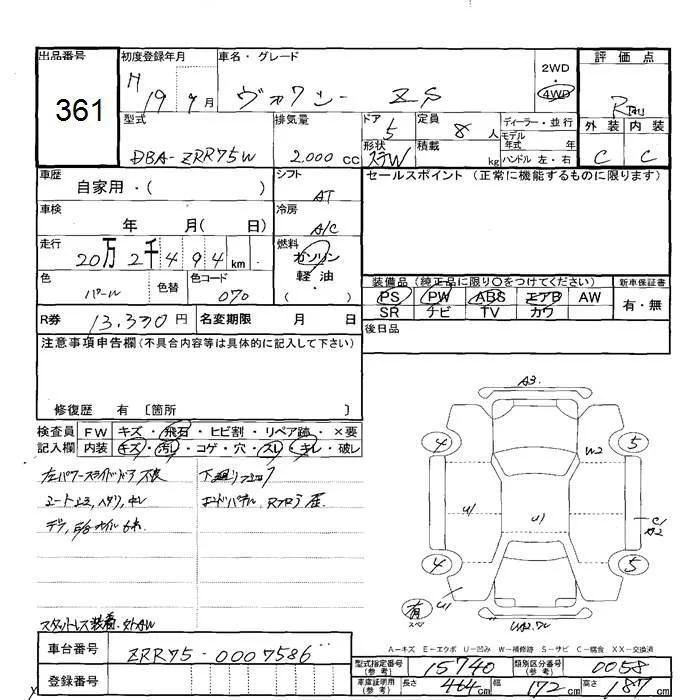 出品番号
361
初度登録年月
H 19 年 9 月
車名・グレード
ヴォクシー ZS
2WD
・
4WD
評価点
R
外装 内装
C C
型式
DBA-ZRR75W
排気量
2,000 CC
ドア
5
形状
定員
8 人
積載
kg
ディーラー・並行
モデル
年式 年
ハンドル 左・右
車歴
自家用・( )
シフト
AT
車検
年 月( 日)
冷房
A/C
走行
20万2千494km
燃料
ガソリン
軽油
( )
色
パール
色替
色コード
070
セールスポイント (正常に機能するものに限ります)
装備品 (純正品に限り○をつけてください)
PS PW ABS エアB AW
SR ナビ TV カワ
新車保証書
有・無
R券
13,370円
名変期限 月 日
後日品
注意事項申告欄(不具合内容等は具体的に記入して下さい)
修復歴 有 〔箇所 〕
検査員
記入欄
FW キズ・飛石・ヒビ割・リペア跡・×要
内装 キズ・汚レ・コゲ・穴・スレ・キレ・破レ
左パワースライドドア不良
シート
スタットレス装着
下廻り
エンドパネル
A3
4 5
W2
U1 U1
C1
A2
4 5
U1
有
スペ
A-キズ E-エクボ U-凹み W-補修跡 S-サビ C-腐食 XX-交換済
車台番号
ZRR75-0007586
登録番号
型式指定番号
(参考)
15740
類別区分番号
(参考)
0058
車庫証明用
(参考)
長さ 464cm 幅 172cm 高さ 187cm